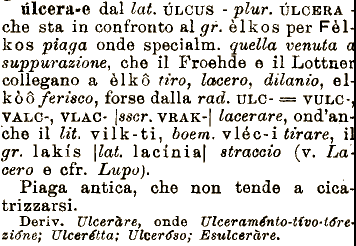 úlcera-e dal lat. ÚLCUS - plur. ÚLCERA -
che sta in confronto al gr. èlkos per Fèl-
kos piaga onde specialm. quella venuta a
suppurazione, che il Froehde e il Lottner
collegano a èlkô tiro, lacero, dilanio, el-
kòô ferisco, forse dalla rad. ULC- = VULC-,
VALC-, VLAC- |sscr. VRAK-| lacerare, ond'an-
che il lit. vilk-ti, boem. vléc-i tirare, il
gr. lakís |lat. lacínia| straccio (v. La-
cero e cfr. Lupo).
Piaga antica, che non tende a cica-
trizzarsi.
Deriv. Ulceràre, onde Ulceraménto-tívo-tóre-
zióne; Ulcerétta; Ulceróso; Esulceràre.